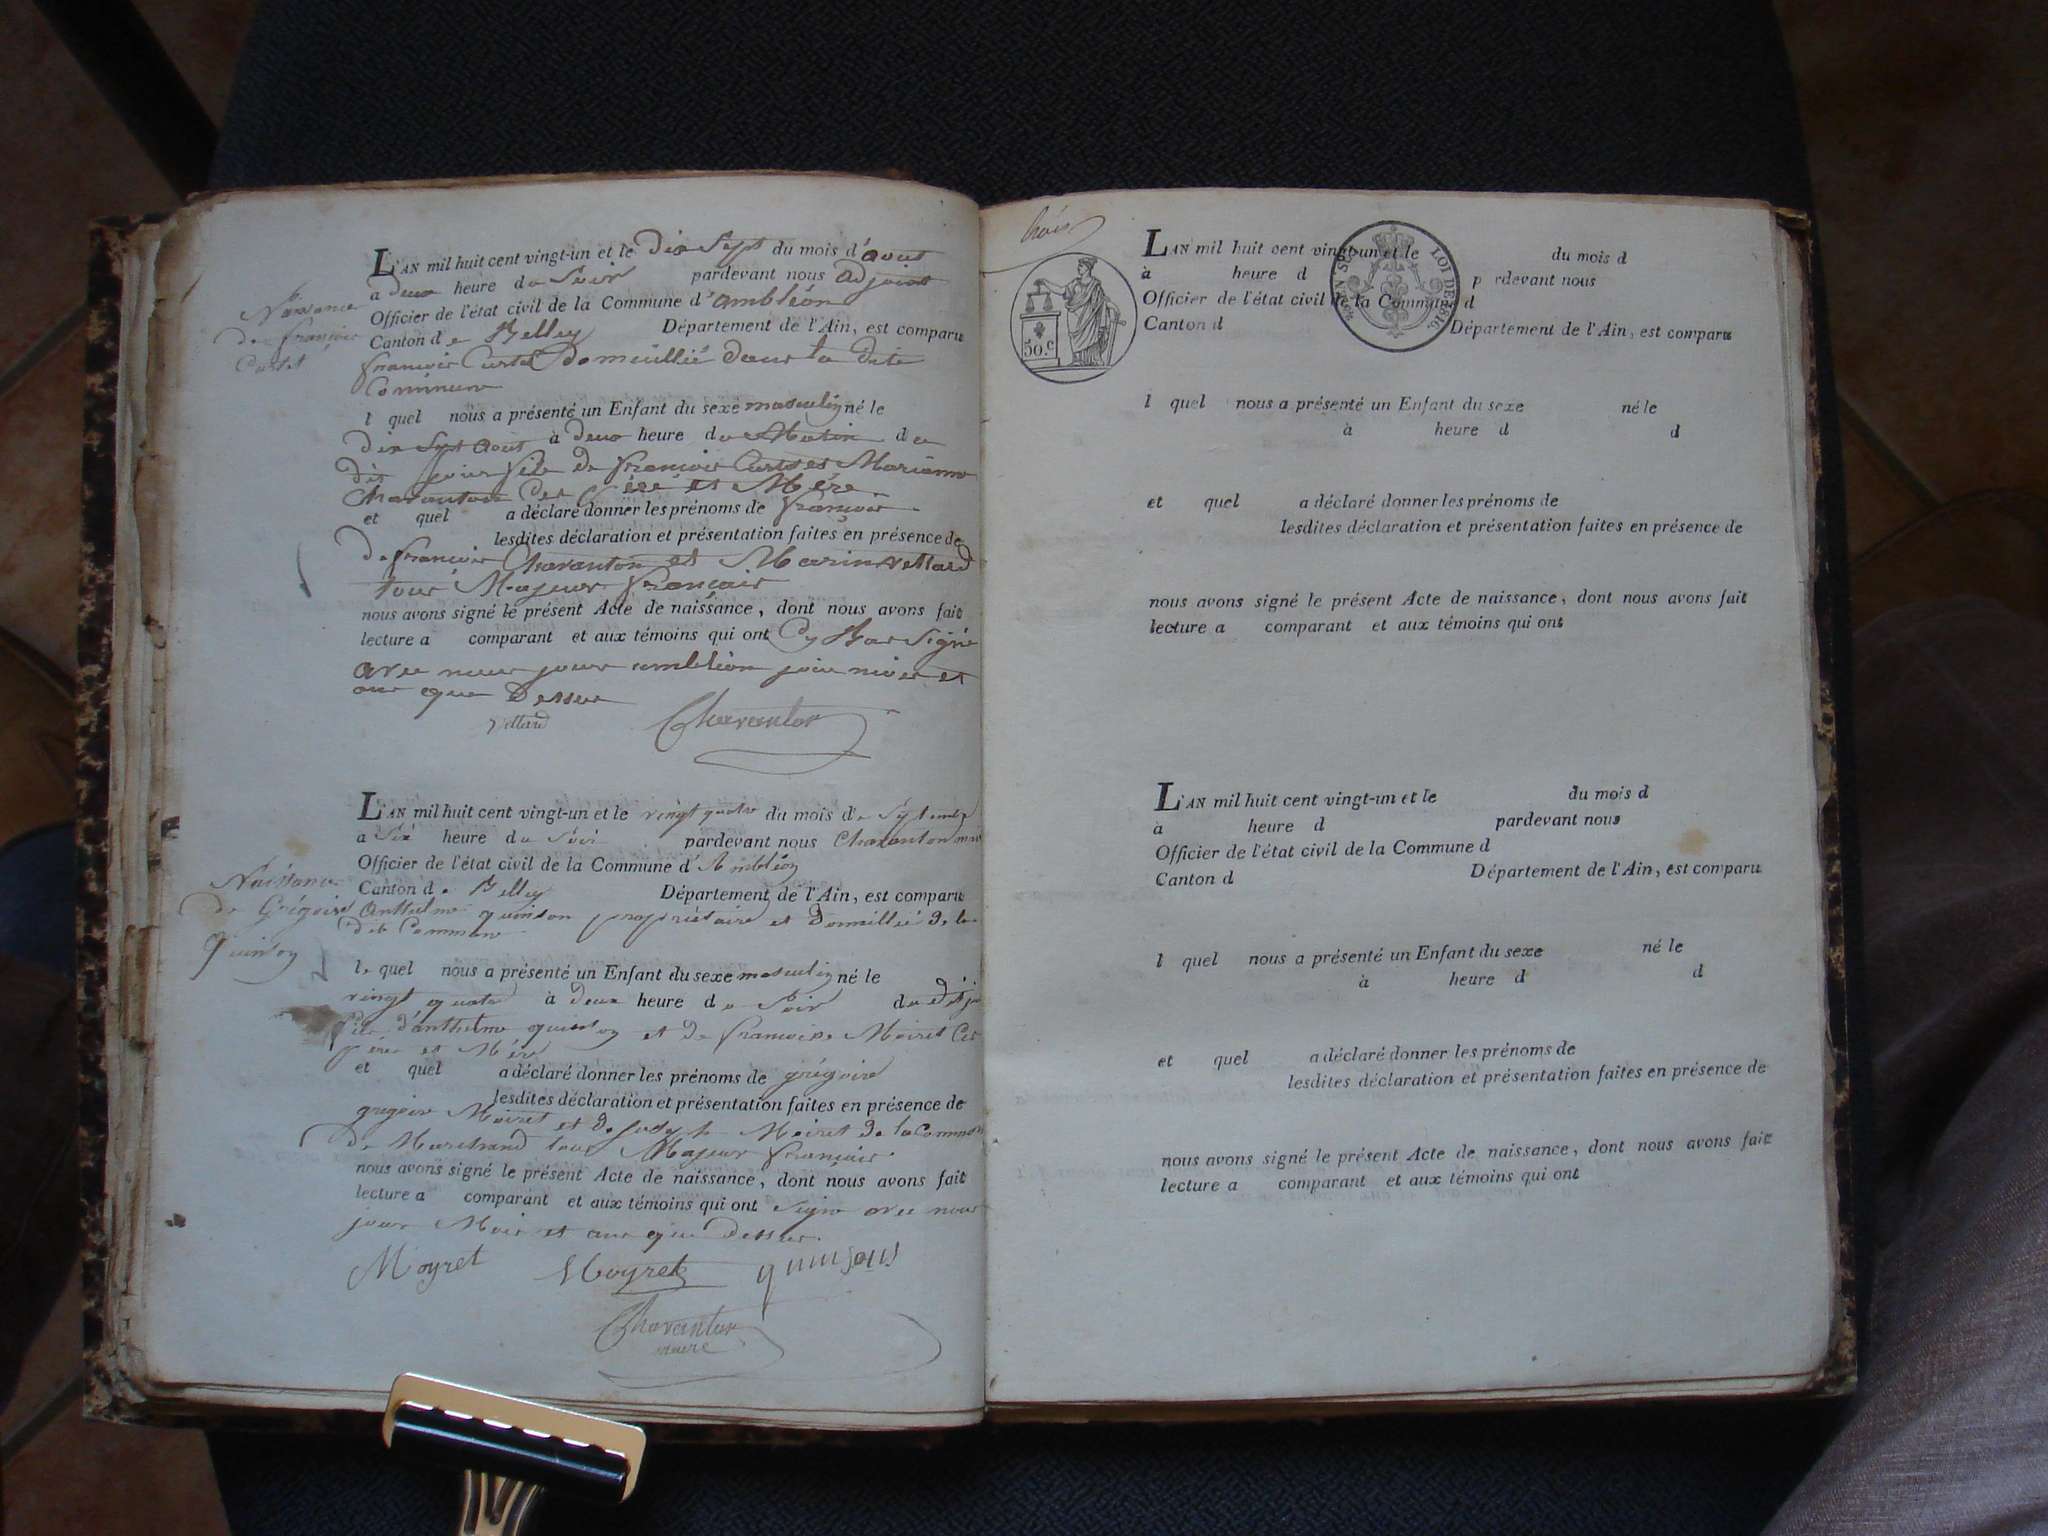 L'AN mil huit cent vingt-un et le dix Sept du mois d'aout
à deux heure du Soir pardevant nous adjoint
Officier de l'état civil de la Commune d'ambléon
Canton de Belley Département de l'Ain, est comparu
françois Curtet domicillié dans la dite
Commune
Naissance
de françois
Curtet
l quel nous a présenté un Enfant du sexe masculin né le
dix Sept aout à deux heure du Matin du
dit jour fils de françois Curtet et Marianne
Charanton Ces père et Mère
et quel a déclaré donner les prénoms de françois
lesdites déclaration et présentation faites en présence de
De françois Charanton et Marin vettard
tous Majeur français
nous avons signé le présent Acte de naissance, dont nous avons fait
lecture a comparant et aux témoins qui ont Signé
avec nous jour ambléon jour mois et
ans que Dessus
vettard Charanton
L'AN mil huit cent vingt-un et le vingt quatre du mois de Septembre
a Six heure du Soir pardevant nous Charanton maire
Officier de l'état civil de la Commune d'Ambléon
Canton de Belley Département de l'Ain, est comparu
Naissance
de Grégoire
quinson
Anthelme quinson propriétaire et Domicillié de la
dite Commune
le quel nous a présenté un Enfant du sexe masculin né le
vingt quatre à deux heure du Soir du dit jour
fils d'anthelme quinson et de françoise Moiret Ces
père et Mère
et quel a déclaré donner les prénoms de grégoire
lesdites déclaration et présentation faites en présence de
grégoire Moiret et de Joseph Moiret de la Commune
de Marchand tous Majeur français
nous avons signé le présent Acte de naissance, dont nous avons fait
lecture a comparant et aux témoins qui ont Signé avec nous
jour Mois et ans que dessus.
Moyret Moyret quinson
Charanton
maire
trois
50.c
LOI DE 1816.
L'AN mil huit cent vingt-un et le du mois d
à heure d pardevant nous
Officier de l'état civil de la Commune d
Canton d Département de l'Ain, est comparu
l quel nous a présenté un Enfant du sexe né le
à heure d d
et quel a déclaré donner les prénoms de
lesdites déclaration et présentation faites en présence de
nous avons signé le présent Acte de naissance, dont nous avons fait
lecture a comparant et aux témoins qui ont
L'AN mil huit cent vingt-un et le du mois d
à heure d pardevant nous
Officier de l'état civil de la Commune d
Canton d Département de l'Ain, est comparu
l quel nous a présenté un Enfant du sexe né le
à heure d d
et quel a déclaré donner les prénoms de
lesdites déclaration et présentation faites en présence de
nous avons signé le présent Acte de naissance, dont nous avons fait
lecture a comparant et aux témoins qui ont